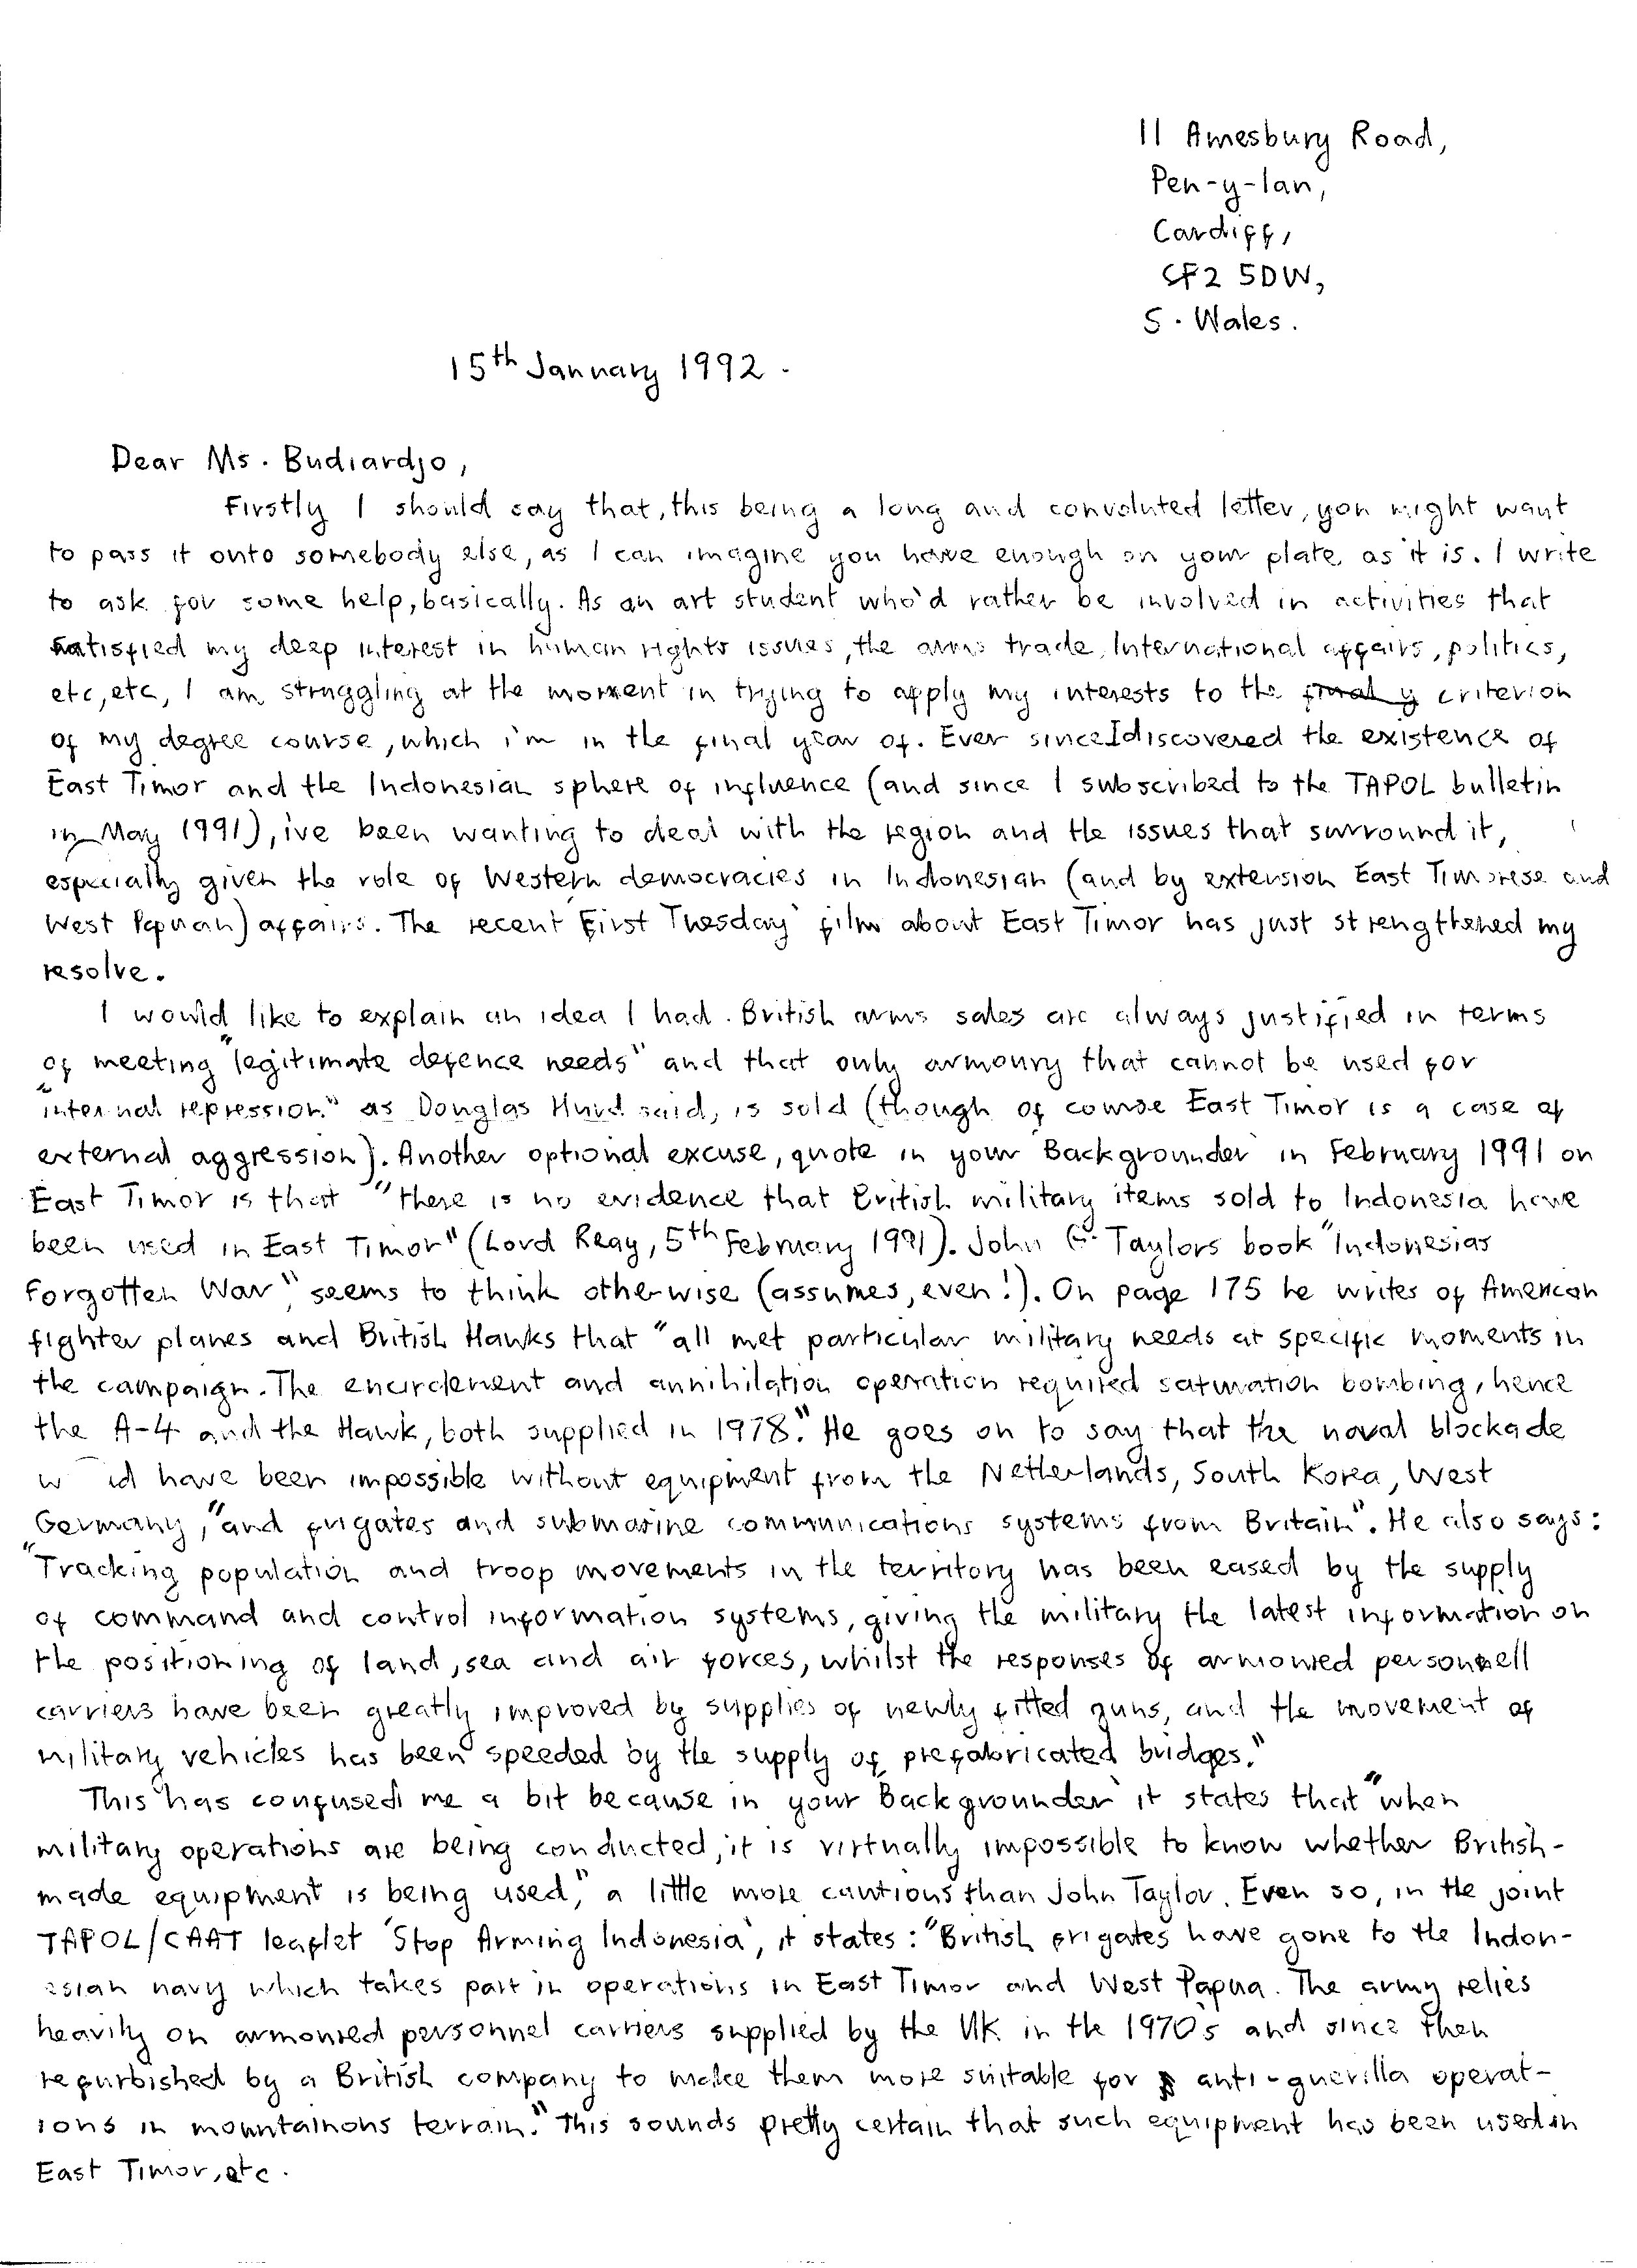 11 Amesbury Road,
Pen-y-lan,
Cardiff,
CF2 5DW,
S. Wales.
15th January 1992.
Dear Ms. Budiardjo,
Firstly I should say that, this being a long and convoluted letter, you might want
to pass it onto somebody else, as I can imagine you have enough on your plate as it is. I write
to ask for some help, basically. As an art student who'd rather be involved in activities that
satisfied my deep interest in human rights issues, the arms trade, International affairs, politics,
etc, etc, I am struggling at the moment in trying to apply my interests to the criterion
of my degree course, which i'm in the final year of. Ever since I discovered the existence of
East Timor and the Indonesian sphere of influence (and since I subscribed to the TAPOL bulletin
in May 1991), ive been wanting to deal with the region and the issues that surround it,
especially given the role of Western democracies in Indonesian (and by extension East Timorese and
West Papuan) affairs. The recent 'First Tuesday' film about East Timor has just strengthened my
resolve.
I would like to explain an idea I had. British arms sales are always justified in terms
of meeting "legitimate defence needs" and that only armoury that cannot be used for
"internal repression" as Douglas Hurd said, is sold (though of course East Timor is a case of
external aggression). Another optional excuse, quote in your 'Backgrounder' in February 1991 on
East Timor is that "there is no evidence that British military items sold to Indonesia have
been used in East Timor" (Lord Reay, 5th February 1991). John G. Taylors book "Indonesias
Forgotten War" seems to think otherwise (assumes, even!). On page 175 he writes of American
fighter planes and British Hawks that "all met particular military needs at specific moments in
the campaign. The encirclement and annihilation operation required saturation bombing, hence
the A-4 and the Hawk, both supplied in 1978." He goes on to say that the naval blockade
would have been impossible without equipment from the Netherlands, South Korea, West
Germany, "and frigates and submarine communications systems from Britain". He also says:
"Tracking population and troop movements in the territory has been eased by the supply
of command and control information systems, giving the military the latest information on
the positioning of land, sea and air forces, whilst the responses of armoured personnell
carriers have been greatly improved by supplies of newly fitted guns, and the movement of
military vehicles has been speeded by the supply of prefabricated bridges."
This has confused me a bit because in your 'Backgrounder' it states that "when
military operations are being conducted, it is virtually impossible to know whether British-
made equipment is being used," a little more cautious than John Taylor. Even so, in the joint
TAPOL/CAAT leaflet 'Stop Arming Indonesia', it states: "British frigates have gone to the Indon-
esian navy which takes part in operations in East Timor and West Papua. The army relies
heavily on armoured personnel carriers supplied by the UK in the 1970's and since then
refurbished by a British company to make them more suitable for anti-guerilla operat-
ions in mountainous terrain." This sounds pretty certain that such equipment has been used in
East Timor, etc.